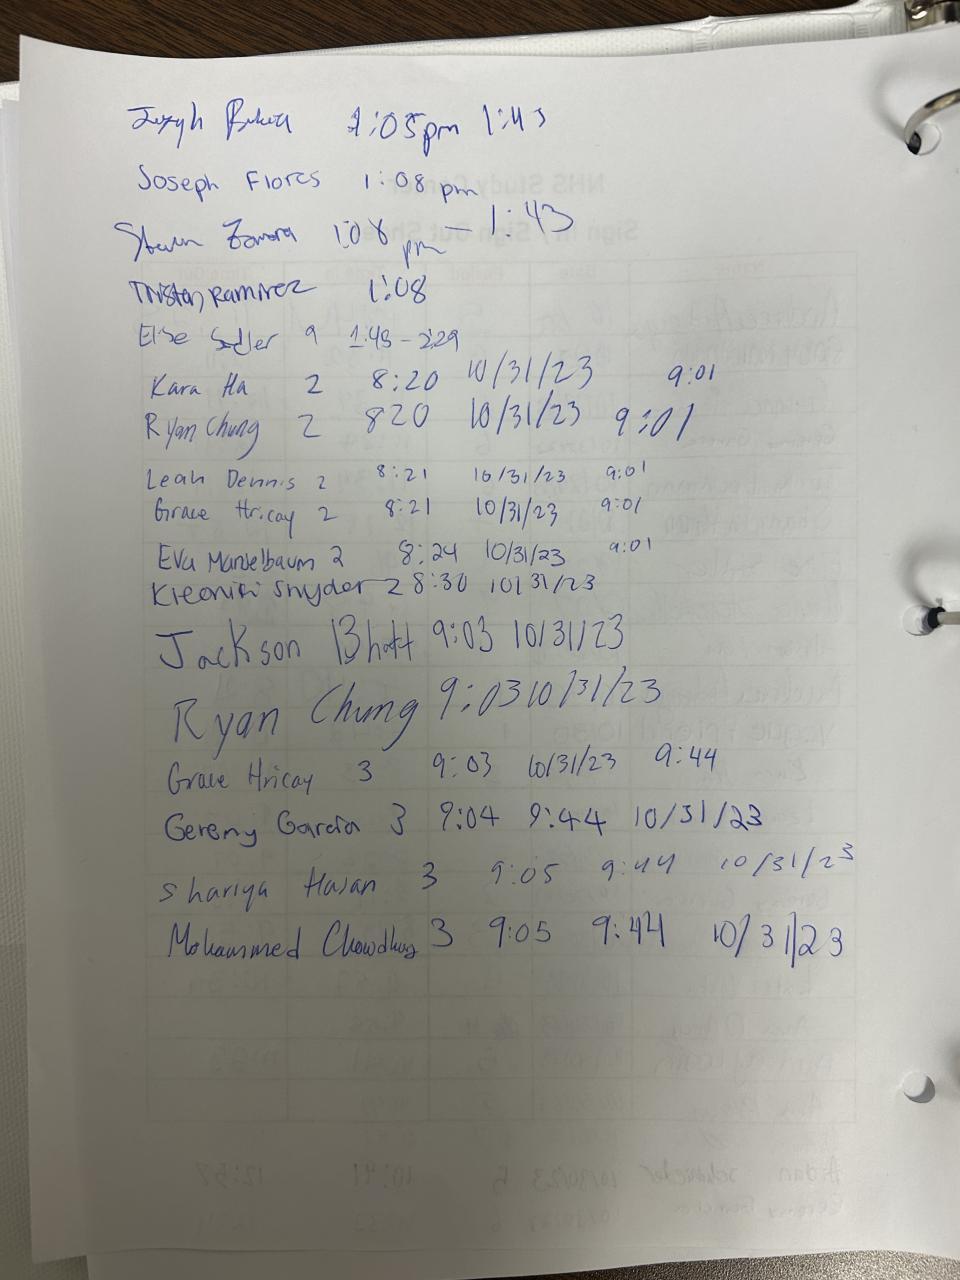 1:05pm 1:43
Joseph Flores 1:08 pm
Zamora 1:08 pm - 1:43
Tristan Ramirez 1:08
Elise Sadler 9 1:48 - 2:29
Kara Ha 2 8:20 10/31/23 9:01
Ryan Chung 2 820 10/31/23 9:01
Leah Dennis 2 8:21 10/31/23 9:01
Grace Hricay 2 8:21 10/31/23 9:01
Eva Mandelbaum 2 8:24 10/31/23 9:01
Snyder 2 8:30 10/31/23
Jackson Bhatt 9:03 10/31/23
Ryan Chung 9:03 10/31/23
Grace Hricay 3 9:03 10/31/23 9:44
Geremy Garcia 3 9:04 9:44 10/31/23
Shariya Hasan 3 9:05 9:44 10/31/23
Mohammed Chowdhury 3 9:05 9:44 10/31/23